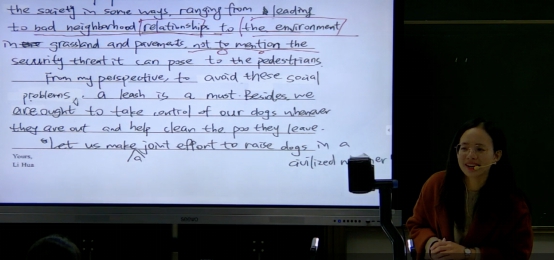 the society in some ways, ranging from leading
to bad neighborhood relationships to the environment
in grassland and pavements not to mention the
security threat it can pose to the pedestrians.
From my perspective, to avoid these social
problems, a leash is a must. Besides, we
are ought to take control of our dogs whenever
they are out and help clean the poo they leave.
Let us make a joint effort to raise dogs in a
civilized manner
Yours,
Li Hua